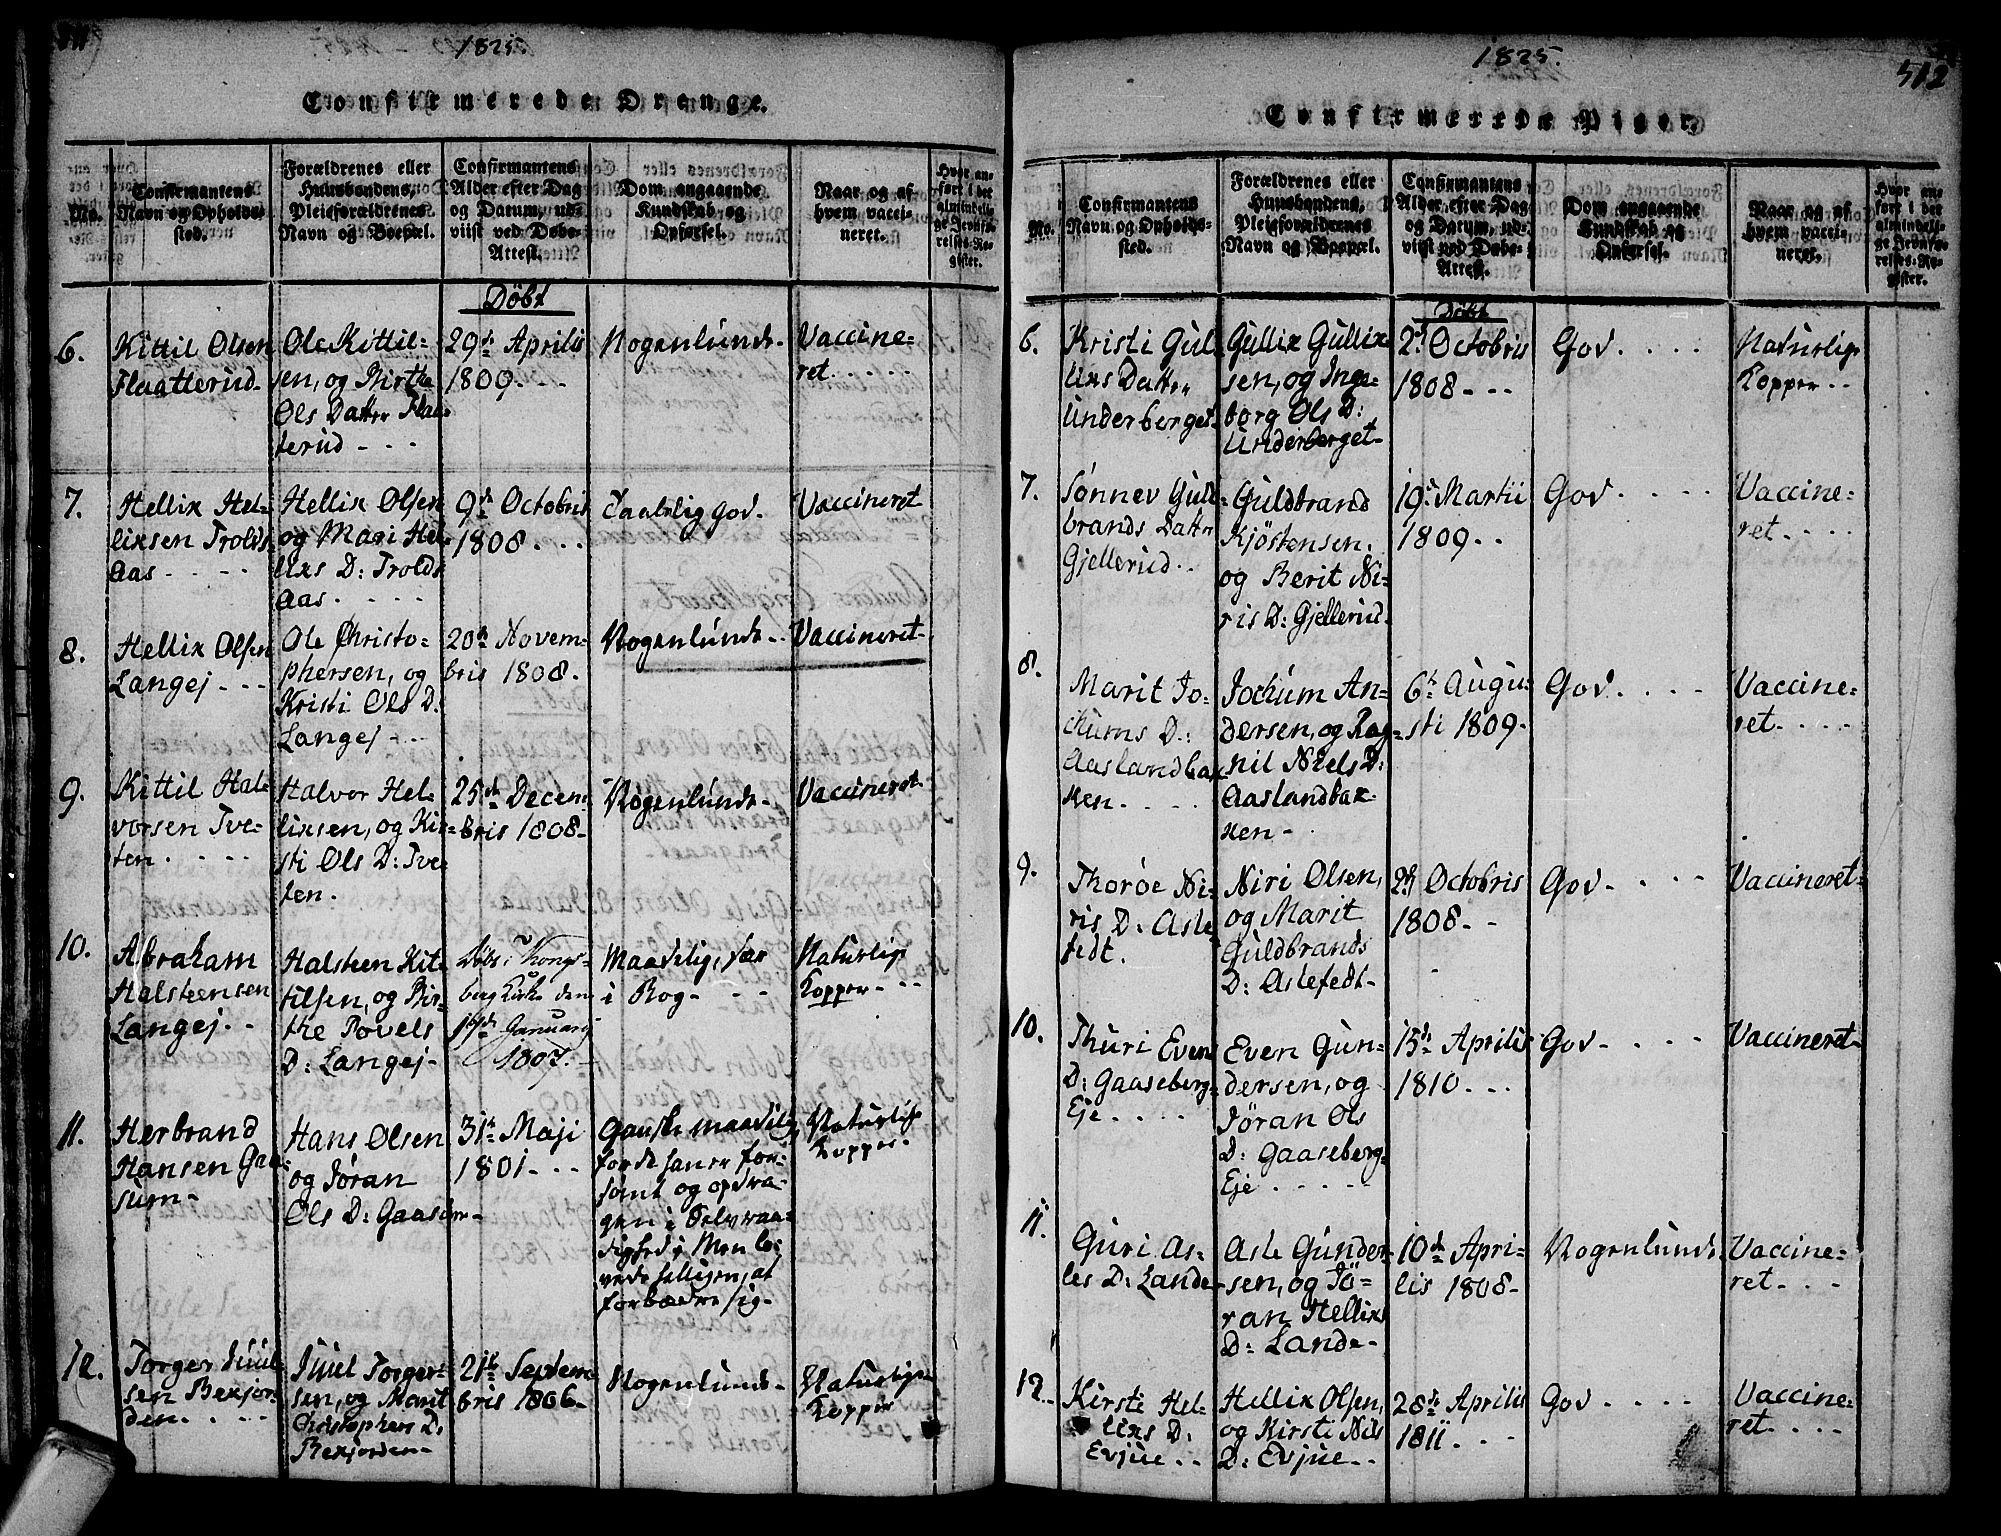 1825.
Confirmerede Drenge.
No.
Confirmantens
Navn og Opholds-
sted.
Forældrenes eller
Huusbondens,
Plejeforældrenes
Navn og Boepæl.
Confirmantens
Alder efter Dag
og Datum, ud-
viist ved Døbe-
Attest.
Dom angaaende
Kundskab og
Opførsel.
Naar og af
hvem vacci-
neret.
Hvor an-
ført i det
almindeli-
ge Jevnfø-
relses-Re-
gister.
Döbt
6.
Kittil Olsen
Flaatterud-
Ole Kittil-
sen, og Birthe
Ols Datter Flaa-
terud - - -
29de Aprilis
1809. - -
Nogenlunde-
Vaccine-
ret. . . . .
7.
Hellix Hel-
lixsen Trolds-
Aas - - - -
Hellix Olsen
og Mari Hel-
lixs D: Trolds
Aas. - - - -
9de Octobris
1808. - - -
Taalelig god.
Vaccineret
8.
Hellix Olsen
Langej - - -
Ole Christo-
phersen, og
Kristi Ols D:
Langej - - -
20de Novem-
bris 1808.
Nogenlunde-
Vaccineret-
9.
Kittil Hal-
vorsen Tve-
ten. - - - -
Halvor Hel-
lixsen, og Kir-
sti Ols D: Tve-
ten.
25de Decem-
bris 1808-
Nogenlunde-
Vaccineret-
10.
Abraham
Halsteensen
Langej. - -
Halsteen Kit-
tilsen, og Bir-
the Povels
D: Langej-
Döbt i Kongs-
berg Kirke den
Januarij
1807. -
Maadelig, især
i Bog- - -
Naturlige
Kopper- - -
11.
Herbrand
Hansen Gaa-
sum-
Hans Olsen
og Jøran
Ols D: Gaasum-
31te Maji
1801- - -
Ganske maadelig,
fordi han er for-
sömt og opdra-
gen i Selvraa-
dighed; Men lo-
vede helligen, at
forbædre sig-
Naturlige
Kopper-
12.
Torger Juul-
sen Bexjor-
den. . - - -
Juul Torger-
sen, og Marit
Christophers D:
Bexjorden-
21de Septem-
bris 1806-
Nogenlunde-
Naturlige
Kopper
1825.
512
Confirmerede Piger.
No.
Confirmantens
Navn og Opholds-
sted.
Forældrenes eller
Huusbondens,
Plejeforældrenes
Navn og Boepæl.
Confirmantens
Alder efter Dag
og Datum, ud-
viist ved Døbe-
Attest.
Dom angaaende
Kundskab og
Opførsel.
Naar og af
hvem vacci-
neret.
Hvor an-
ført i det
almindeli-
ge Jevnfø-
relses-Re-
gister.
Döbt
6.
Kristi Gul-
lixs Datter
Underberget-
Gullix Gullix-
sen, og Inge-
borg Ols D:
Underberget-
2de Octobris
1808- - -
God. . . . .
Naturlige
Kopper - -
7.
Sønnev Guld-
brands Datter
Gjellerud. .
Guldbrand
Kjöstensen,
og Berit Ni-
ris D: Gjellerud.
19de Martii
1809. -
God. . - - -
Vaccine-
ret. - - - -
8.
Marit Jo-
chums D:
Aaslandbax-
xen. - - - -
Jochum An-
dersen, og Rag-
nil Niels D:
Aaslandbax-
xen -
6te Augu-
sti 1809-
God. . - - -
Vaccine-
ret. - - - -
9.
Thoröe Ni-
ris D: Asle-
fedt.
Niri Olsen,
og Marit
Guldbrands
D: Aslefedt-
Octobris
1808- -
God- . - - -
Vaccineret-
10.
Thuri Even
D: Gaaseberg-
Eje. - - - -
Even Gun-
dersen, og
Jøran Ols
D: Gaaseberg-
Eje - - - - -
15de Aprilis
1810. - - -
God- . - - -
Vaccineret-
11.
Guri As-
les D: Lande-
Asle Gunder-
sen, og Jö-
ran Hellixs
D: Lande-
10de Apri-
lis 1808-
Nogenlunde.
Vaccine-
ret- - - -
12.
Kirsti Hel-
lixs D:
Evjue. . -
Hellix Olsen,
og Kirsti Nils
D: Evjue- -
28de Aprilis
1811. - - -
God . . - - -
Vaccine-
ret. - - - -